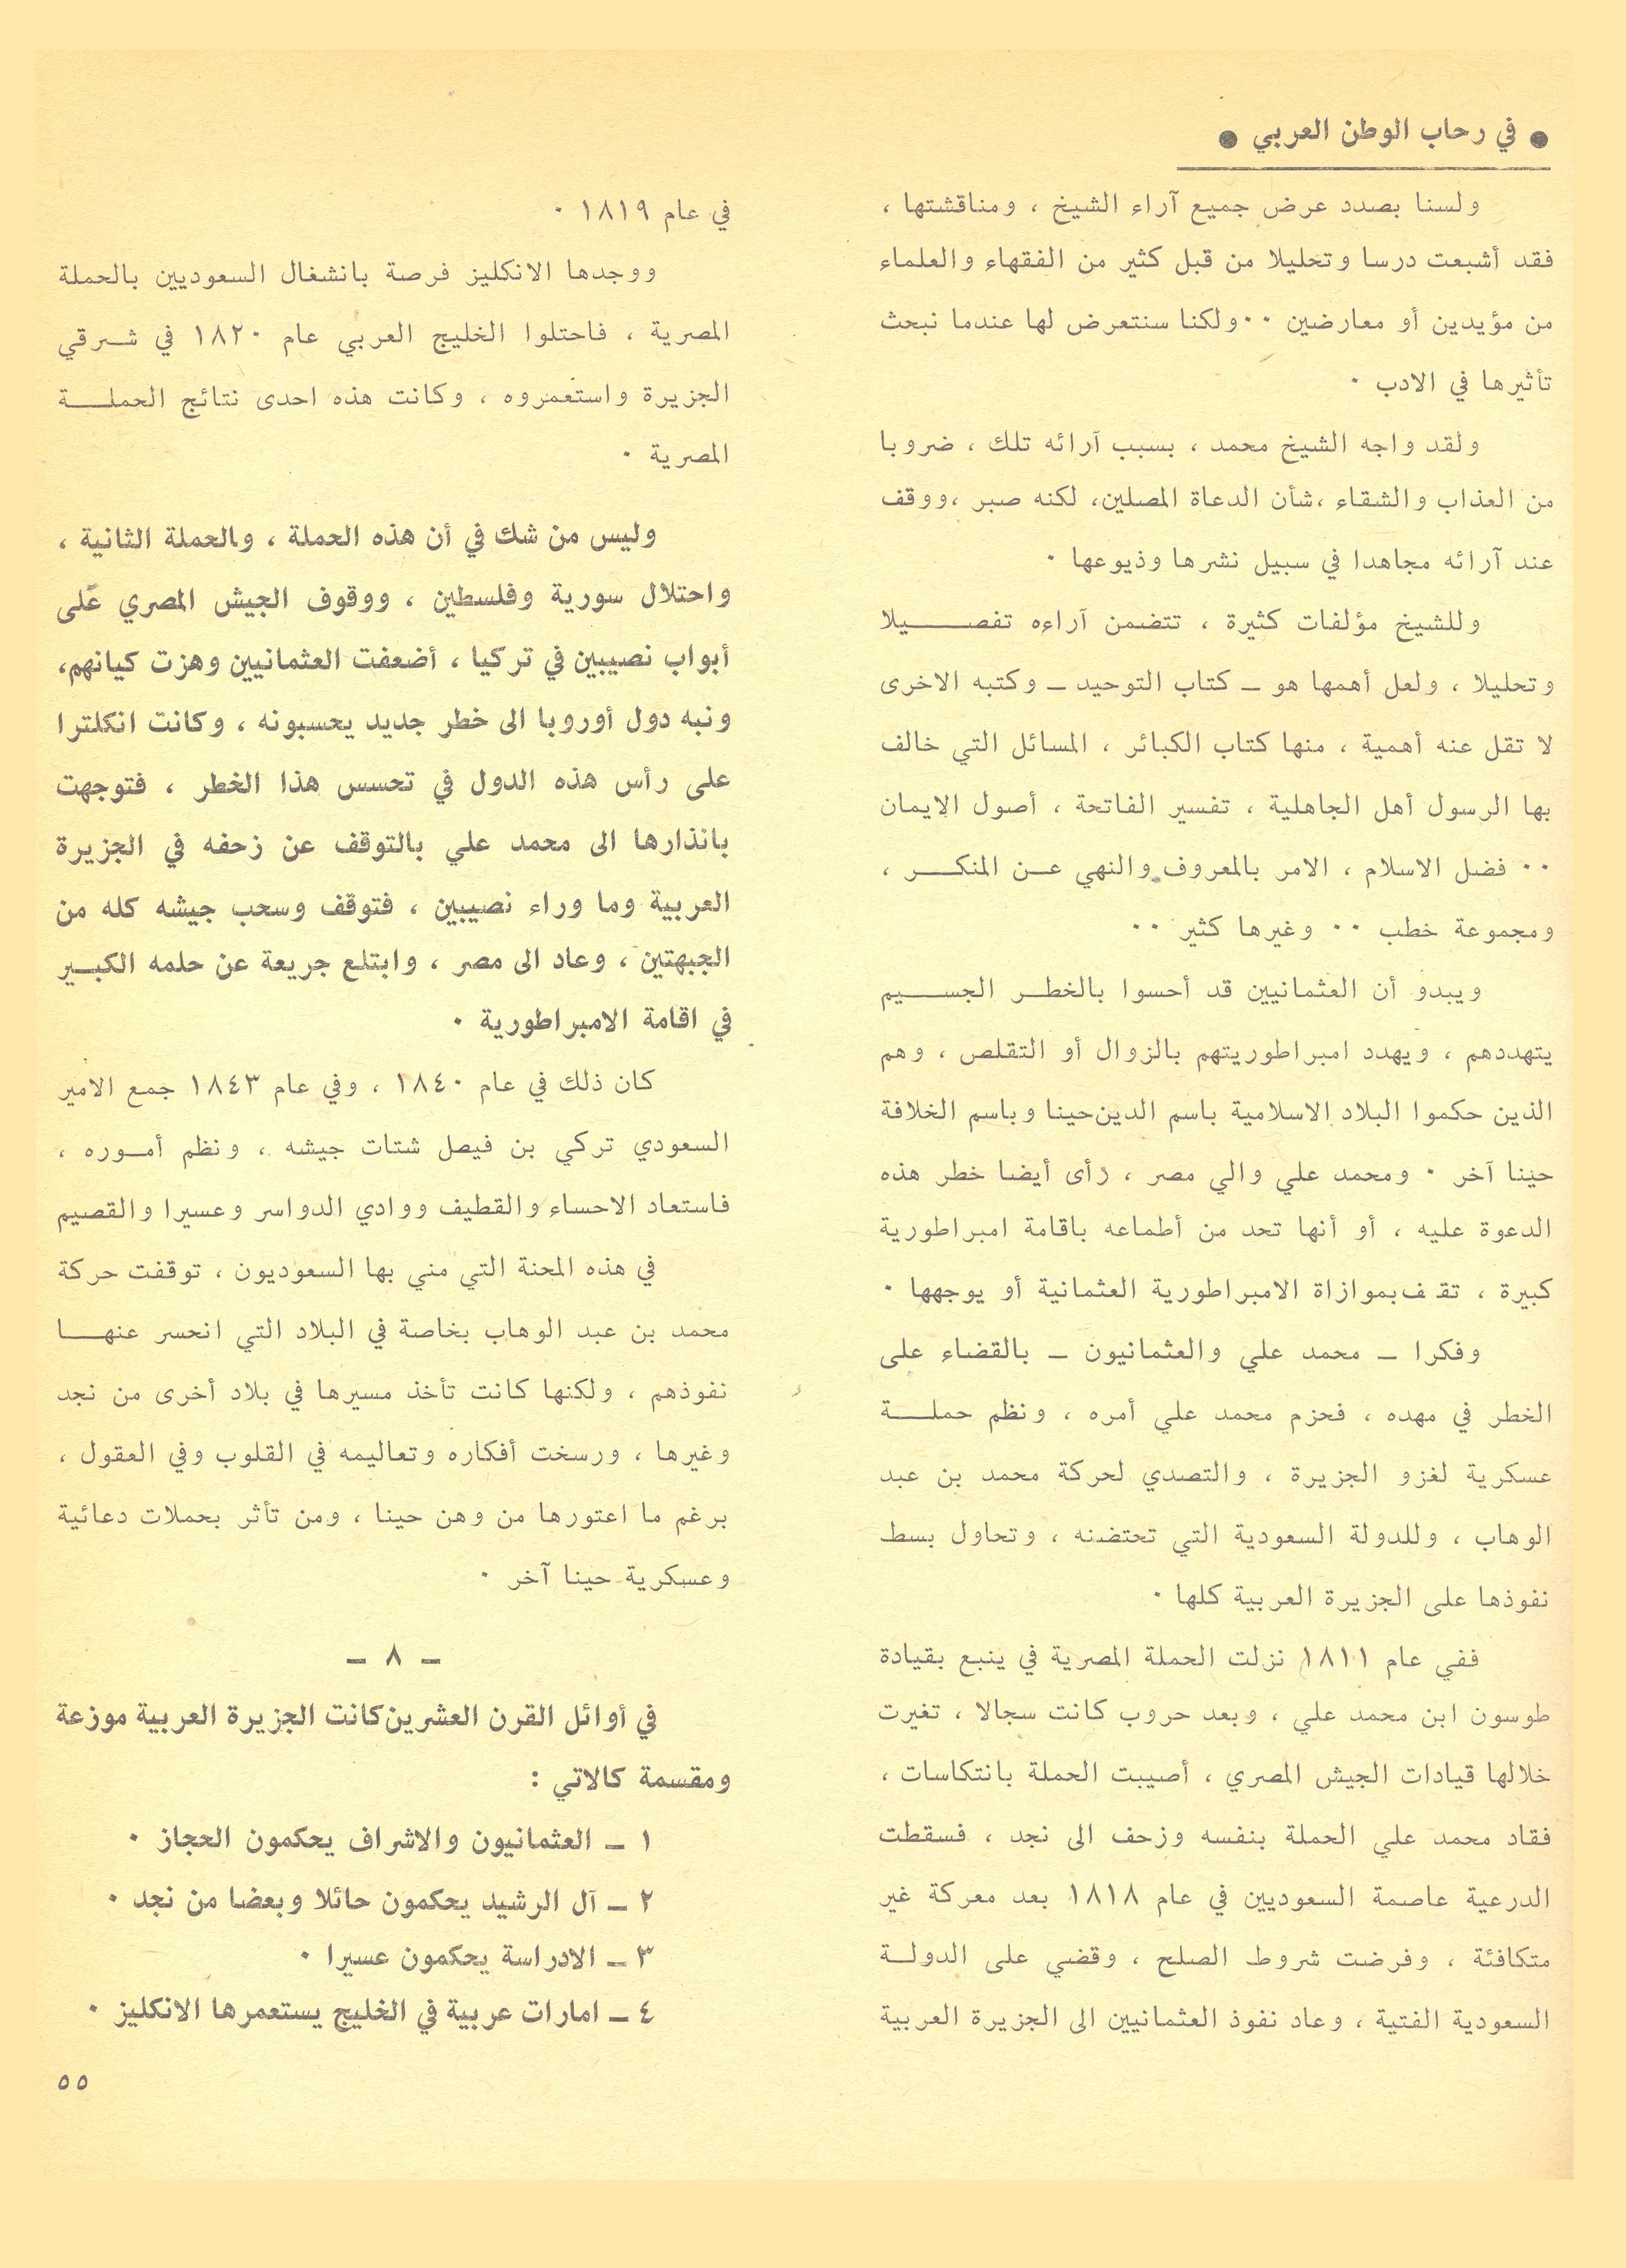 ● في رحاب الوطن العربي ●
ولسنا بصدد عرض جميع آراء الشيخ ، ومناقشتها ،
فقد أشبعت درسا وتحليلا من قبل كثير من الفقهاء والعلماء
من مؤيدين أو معارضين ٠٠ ولكنا سنتعرض لها عندما نبحث
تأثيرها في الادب ٠
ولقد واجه الشيخ محمد ، بسبب آرائه تلك ، ضروبا
من العذاب والشقاء ،شأن الدعاة المصلين، لكنه صبر ،ووقف
عند آرائه مجاهدا في سبيل نشرها وذيوعها ٠
وللشيخ مؤلفات كثيرة ، تتضمن آراءه تفصيلا
وتحليلا ، ولعل أهمها هو ــ كتاب التوحيد ــ وكتبه الاخرى
لا تقل عنه أهمية ، منها كتاب الكبائر ، المسائل التي خالف
بها الرسول أهل الجاهلية ، تفسير الفاتحة ، أصول الايمان
٠٠ فضل الاسلام ، الامر بالمعروف والنهي عن المنكر ،
ومجموعة خطب ٠٠ وغيرها كثير ٠٠
ويبدو أن العثمانيين قد أحسوا بالخطر الجسيم
يتهددهم ، ويهدد امبراطوريتهم بالزوال أو التقلص ، وهم
الذين حكموا البلاد الاسلامية باسم الدين حينا وباسم الخلافة
حينا آخر ٠ ومحمد علي والي مصر ، رأى أيضا خطر هذه
الدعوة عليه ، أو أنها تحد من أطماعه باقامة امبراطورية
كبيرة ، تقف بموازاة الامبراطورية العثمانية أو يوجهها ٠
وفكرا ــ محمد علي والعثمانيون ــ بالقضاء على
الخطر في مهده ، فحزم محمد علي أمره ، ونظم حملة
عسكرية لغزو الجزيرة ، والتصدي لحركة محمد بن عبد
الوهاب ، وللدولة السعودية التي تحتضنه ، وتحاول بسط
نفوذها على الجزيرة العربية كلها ٠
ففي عام ١٨١١ نزلت الحملة المصرية في ينبع بقيادة
طوسون ابن محمد علي ، وبعد حروب كانت سجالا ، تغيرت
خلالها قيادات الجيش المصري ، أصيبت الحملة بانتكاسات ،
فقاد محمد علي الحملة بنفسه وزحف الى نجد ، فسقطت
الدرعية عاصمة السعوديين في عام ١٨١٨ بعد معركة غير
متكافئة ، وفرضت شروط الصلح ، وقضي على الدولة
السعودية الفتية ، وعاد نفوذ العثمانيين الى الجزيرة العربية
في عام ١٨١٩ ٠
ووجدها الانكليز فرصة بانشغال السعوديين بالحملة
المصرية ، فاحتلوا الخليج العربي عام ١٨٢٠ في شرقي
الجزيرة واستعمروه ، وكانت هذه احدى نتائج الحملة
المصرية ٠
وليس من شك في أن هذه الحملة ، والحملة الثانية ،
واحتلال سورية وفلسطين ، ووقوف الجيش المصري على
أبواب نصيبين في تركيا ، أضعفت العثمانيين وهزت كيانهم،
ونبه دول أوروبا الى خطر جديد يحسبونه ، وكانت انكلترا
على رأس هذه الدول في تحسس هذا الخطر ، فتوجهت
بانذارها الى محمد علي بالتوقف عن زحفه في الجزيرة
العربية وما وراء نصيبين ، فتوقف وسحب جيشه كله من
الجبهتين ، وعاد الى مصر ، وابتلع جريعة عن حلمه الكبير
في اقامة الامبراطورية ٠
كان ذلك في عام ١٨٤٠ ، وفي عام ١٨٤٣ جمع الامير
السعودي تركي بن فيصل شتات جيشه ، ونظم أموره ،
فاستعاد الاحساء والقطيف ووادي الدواسر وعسيرا والقصيم
في هذه المحنة التي مني بها السعوديون ، توقفت حركة
محمد بن عبد الوهاب بخاصة في البلاد التي انحسر عنها
نفوذهم ، ولكنها كانت تأخذ مسيرها في بلاد أخرى من نجد
وغيرها ، ورسخت أفكاره وتعاليمه في القلوب وفي العقول ،
برغم ما اعتورها من وهن حينا ، ومن تأثر بحملات دعائية
وعسكرية حينا آخر ٠
ــ ٨ ــ
في أوائل القرن العشرين كانت الجزيرة العربية موزعة
ومقسمة كالاتي :
١ ــ العثمانيون والاشراف يحكمون الحجاز ٠
٢ ــ آل الرشيد يحكمون حائلا وبعضا من نجد ٠
٣ ــ الادراسة يحكمون عسيرا ٠
٤ ــ امارات عربية في الخليج يستعمرها الانكليز ٠
٥٥